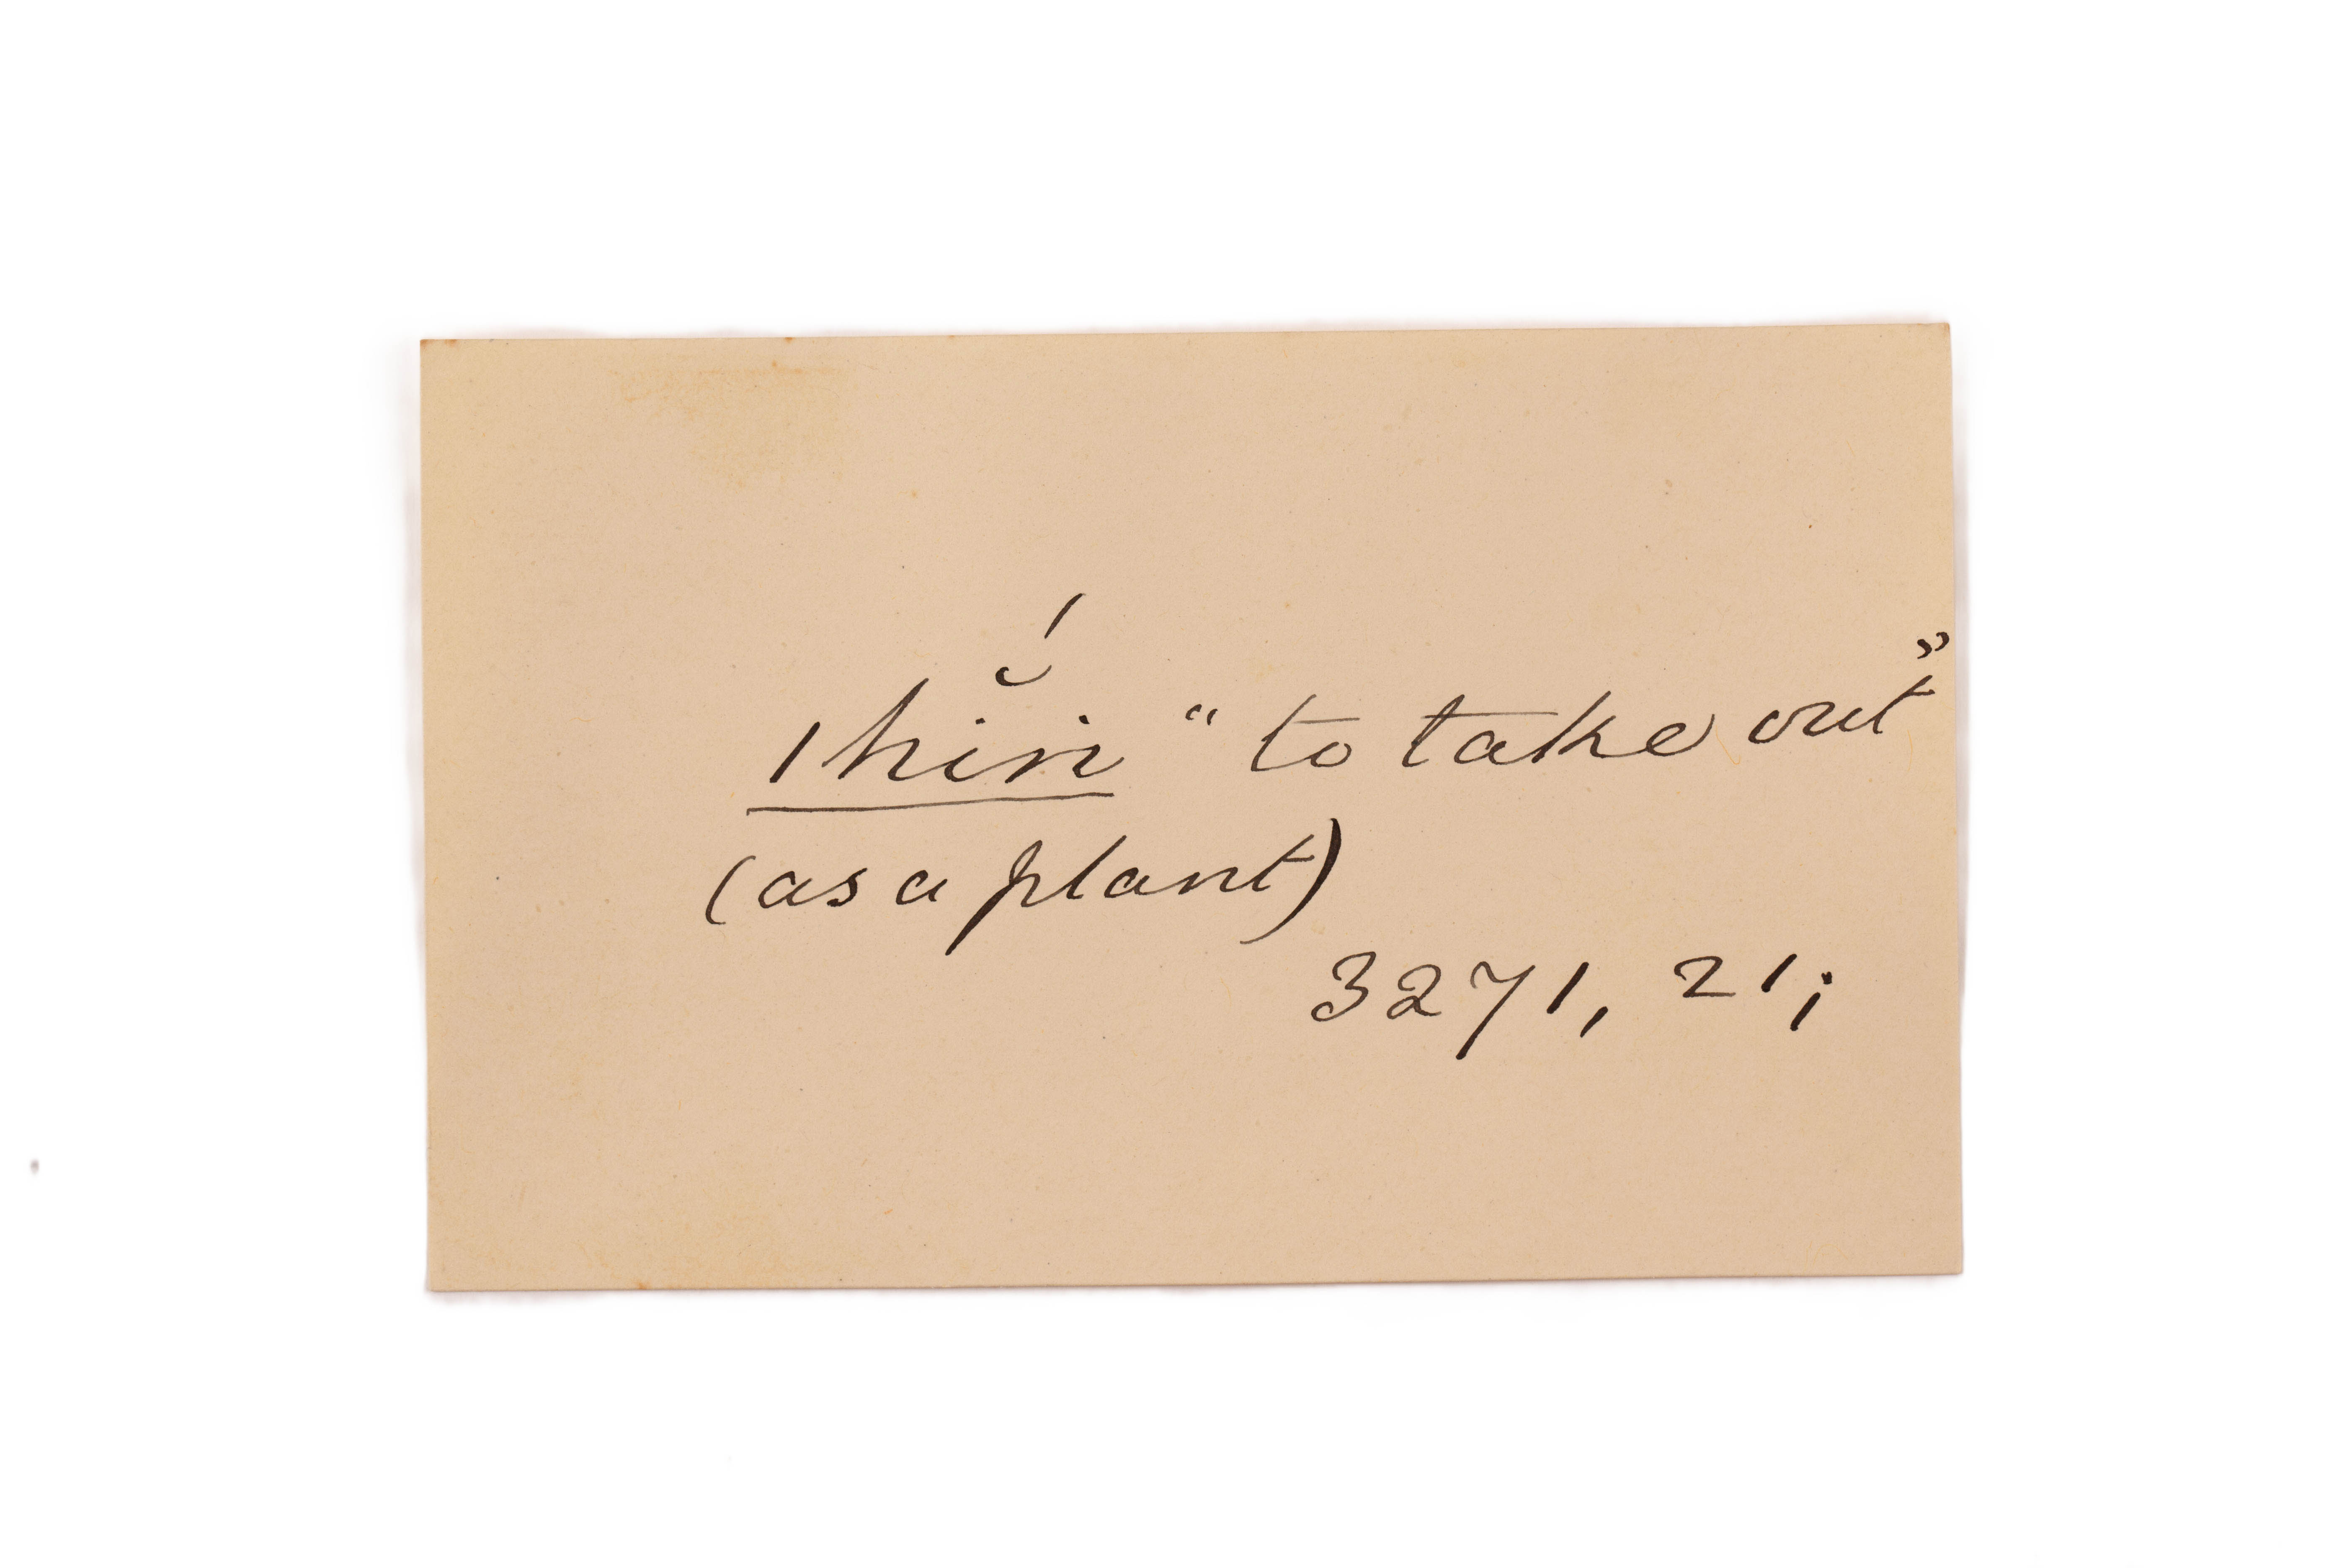 1hĭ́ṅ “to take out”
(as a plant)
3271, 21;